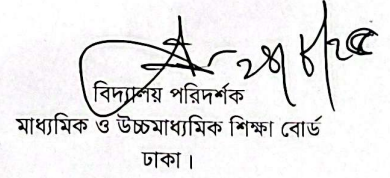 ২৪/৮/২৫
বিদ্যালয় পরিদর্শক
মাধ্যমিক ও উচ্চমাধ্যমিক শিক্ষা বোর্ড
ঢাকা।